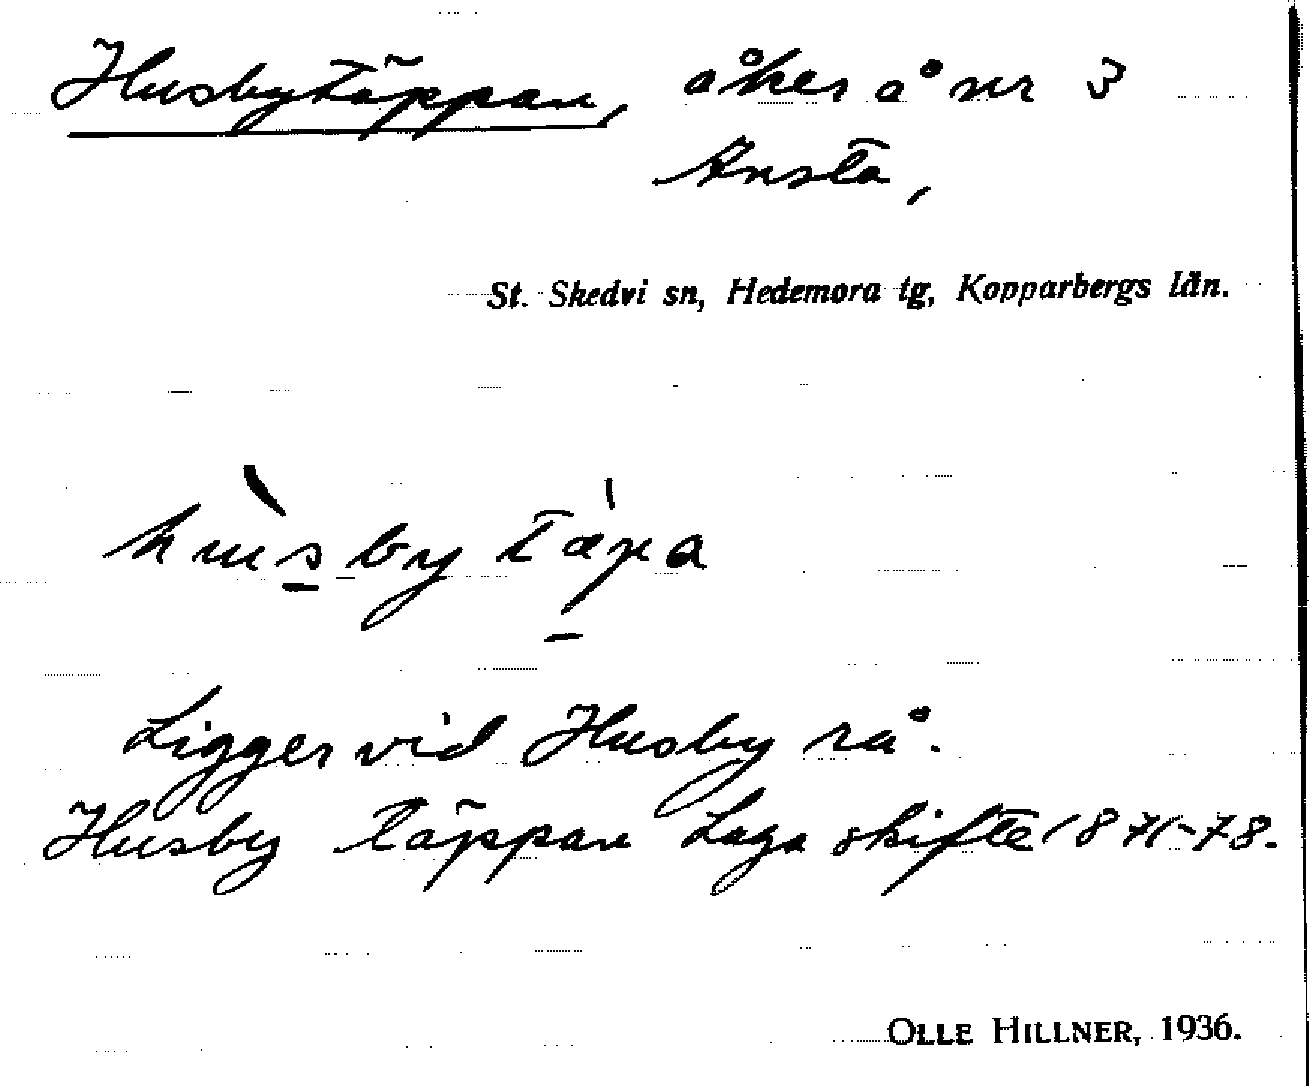 Husbytäppan, åker å nr 3
Ansta,
St. Skedvi sn, Hedemora tg, Kopparbergs län.
hùsby tæ̍pa
Ligger vid Husby rå.
Husby täppan Laga skifte 1871-78.
OLLE HILLNER, 1936.